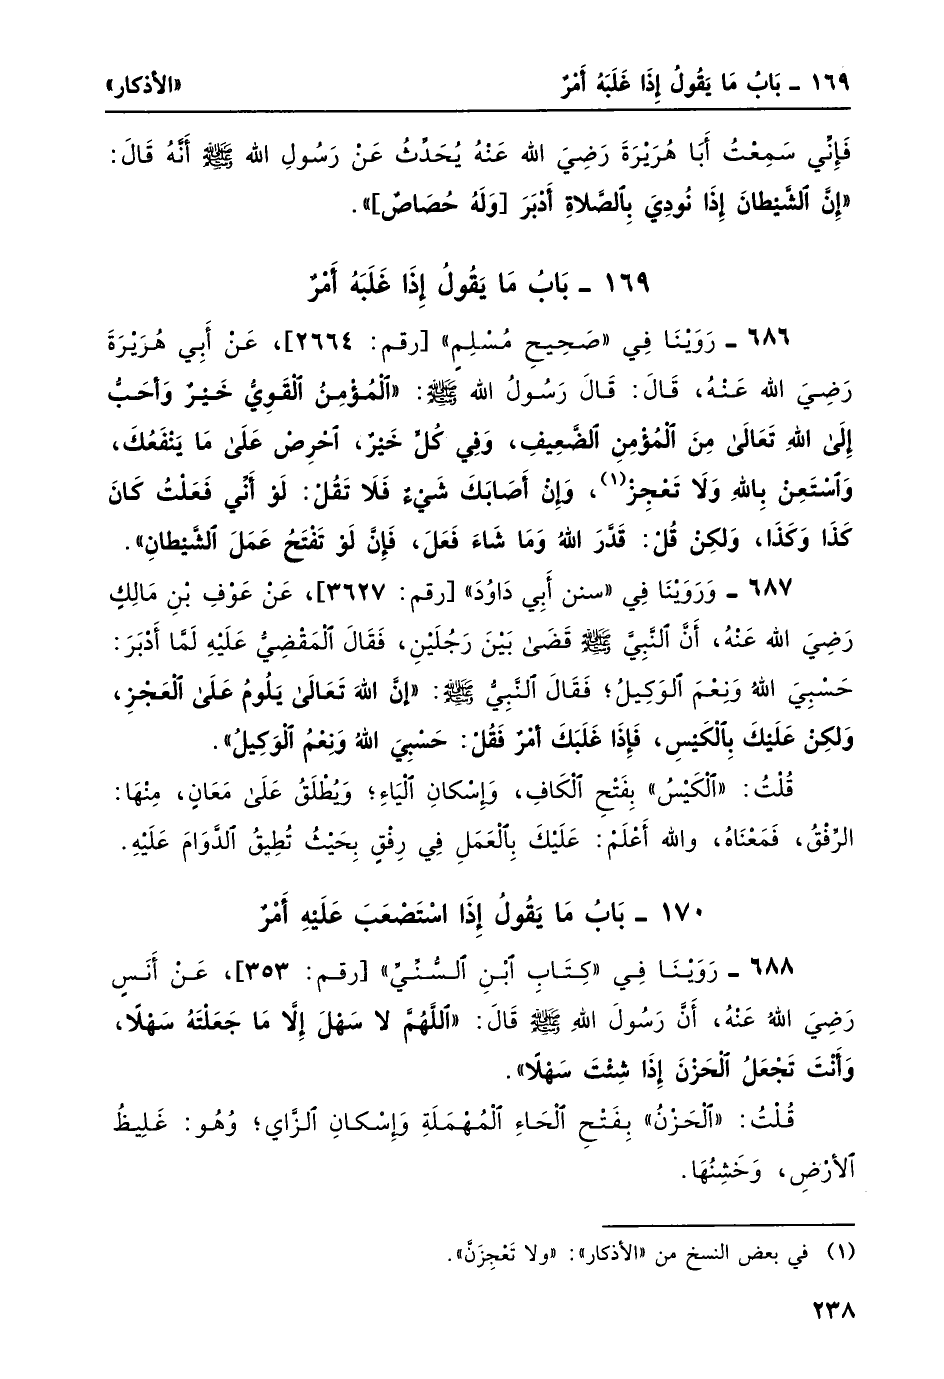 ١٦٩ ـ بَابُ مَا يَقُولُ إِذَا غَلَبَهُ أَمْرٌ «الأذكار»
فَإِنِّي سَمِعْتُ أَبَا هُرَيْرَةَ رَضِيَ الله عَنْهُ يُحَدِّثُ عَنْ رَسُولِ الله ﷺ أَنَّهُ قَالَ:
«إِنَّ ٱلشَّيْطانَ إِذَا نُودِيَ بِٱلصَّلاةِ أَدْبَرَ [وَلَهُ حُصَاصٌ]».
١٦٩ ـ بَابُ مَا يَقُولُ إِذَا غَلَبَهُ أَمْرٌ
٦٨٦ ـ رَوَيْنَا فِي «صَحِيحِ مُسْلِمٍ» [رقم: ٢٦٦٤]، عَنْ أَبِي هُرَيْرَةَ
رَضِيَ الله عَنْهُ، قَالَ: قَالَ رَسُولُ الله ﷺ: «ٱلْمُؤْمِنُ ٱلْقَوِيُّ خَيْرٌ وَأَحَبُّ
إِلَىٰ اللهِ تَعَالَىٰ مِنَ ٱلْمُؤْمِنِ ٱلضَّعِيفِ، وَفِي كُلٍّ خَيْرٌ، ٱحْرِصْ عَلَىٰ مَا يَنْفَعُكَ،
وَٱسْتَعِنْ بِاللهِ وَلَا تَعْجِزْ(١)، وَإِنْ أَصَابَكَ شَيْءٌ فَلَا تَقُلْ: لَوْ أَنِّي فَعَلْتُ كَانَ
كَذَا وَكَذَا، وَلَكِنْ قُلْ: قَدَّرَ اللهُ وَمَا شَاءَ فَعَلَ، فَإِنَّ لَوْ تَفْتَحُ عَمَلَ ٱلشَّيْطانِ».
٦٨٧ ـ وَرَوَيْنَا فِي «سنن أَبِي دَاوُدَ» [رقم: ٣٦٢٧]، عَنْ عَوْفِ بْنِ مَالِكٍ
رَضِيَ الله عَنْهُ، أَنَّ النَّبِيَّ ﷺ قَضَىٰ بَيْنَ رَجُلَيْنِ، فَقَالَ ٱلْمَقْضِيُّ عَلَيْهِ لَمَّا أَدْبَرَ:
حَسْبِيَ اللهُ وَنِعْمَ ٱلوَكِيلُ؛ فَقَالَ ٱلنَّبِيُّ ﷺ: «إِنَّ اللهَ تَعَالَىٰ يَلُومُ عَلَىٰ ٱلْعَجْزِ،
وَلَكِنْ عَلَيْكَ بِٱلْكَيْسِ، فَإِذَا غَلَبَكَ أَمْرٌ فَقُلْ: حَسْبِيَ اللهُ وَنِعْمُ ٱلْوَكِيلُ».
قُلْتُ: «ٱلْكَيْسُ» بِفَتْحِ ٱلْكَافِ، وَإِسْكانِ ٱلْيَاءِ؛ وَيُطْلَقُ عَلَىٰ مَعَانٍ، مِنْهَا:
الرِّفْقُ، فَمَعْنَاهُ، والله أَعْلَمْ: عَلَيْكَ بِٱلْعَمَلِ فِي رِفْقٍ بِحَيْثُ تُطِيقُ ٱلدَّوَامَ عَلَيْهِ.
١٧٠ ـ بَابُ مَا يَقُولُ إِذَا اسْتَصْعَبَ عَلَيْهِ أَمْرٌ
٦٨٨ ـ رَوَيْنَا فِي «كِتَابِ ٱبْنِ ٱلسُّنِّيِّ» [رقم: ٣٥٣]، عَنْ أَنَسٍ
رَضِيَ اللهُ عَنْهُ، أَنَّ رَسُولَ اللهِ ﷺ قَالَ: «ٱللَّهُمَّ لا سَهْلَ إِلَّا مَا جَعَلْتَهُ سَهْلًا،
وَأَنْتَ تَجْعَلُ ٱلْحَزْنَ إِذَا شِئْتَ سَهْلًا».
قُلْتُ: «ٱلْحَزْنُ» بِفَتْحِ ٱلْحَاءِ ٱلْمُهْمَلَةِ وَإِسْكانِ ٱلزَّاي؛ وُهُو: غَلِيظُ
ٱلأرْضِ، وَخَشِنُهَا.
(١) في بعض النسخ من «الأذكار»: «ولا تَعْجِزَنَّ».
٢٣٨